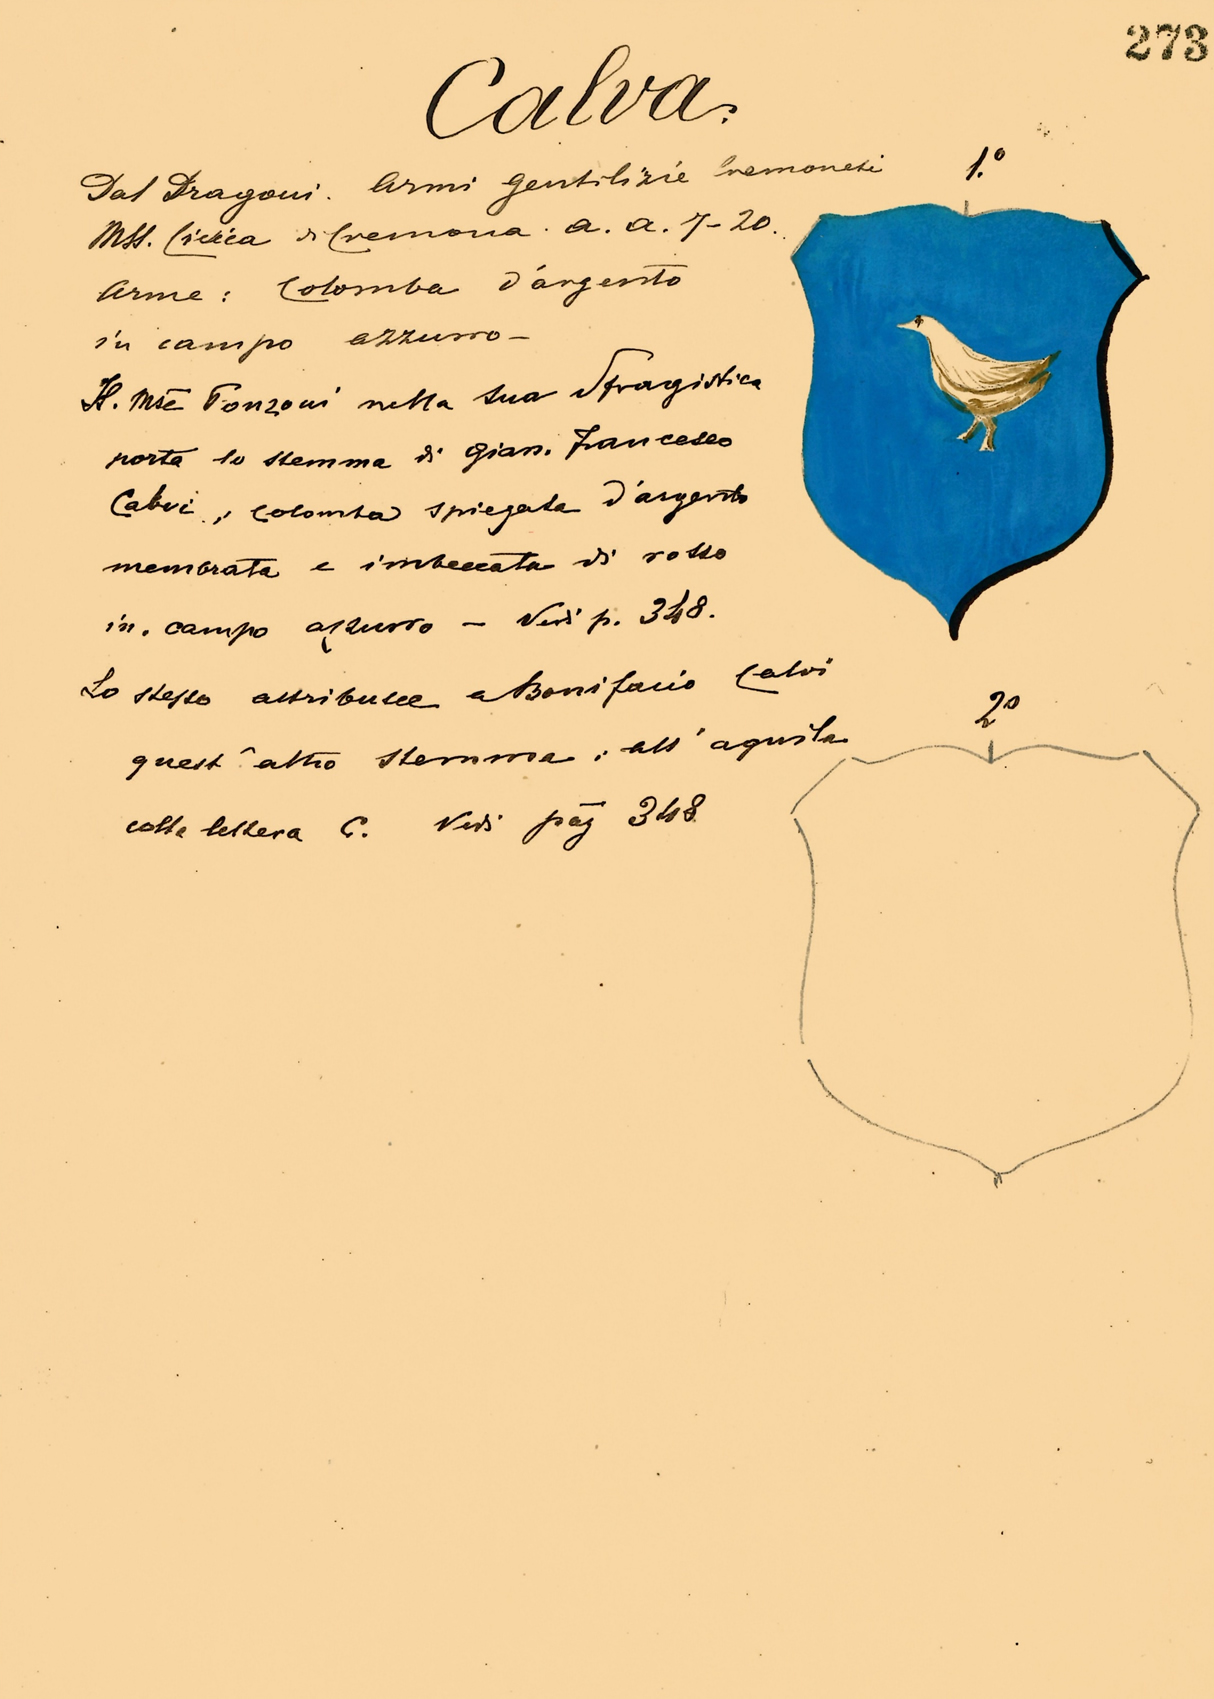 273
Calva.
1.º
Dal Dragoni. Armi Gentilizie Cremonesi
Mss. Civica di Cremona. a. a. 7-20.
Arme: Colomba d'argento
in campo azzurro-
Il Mse Ponzoni nella sua Sfragistica
porta lo stemma di Gian. Francesco
Calvi, colomba spiegata d'argento
membrata e imbeccata di rosso
in. campo azzurro - Vedi p. 348.
Lo stesso attribusce a Bonifacio Calvi
quest' altro stemma; all' aquila
colla lettera C. Vedi pag 348
2º